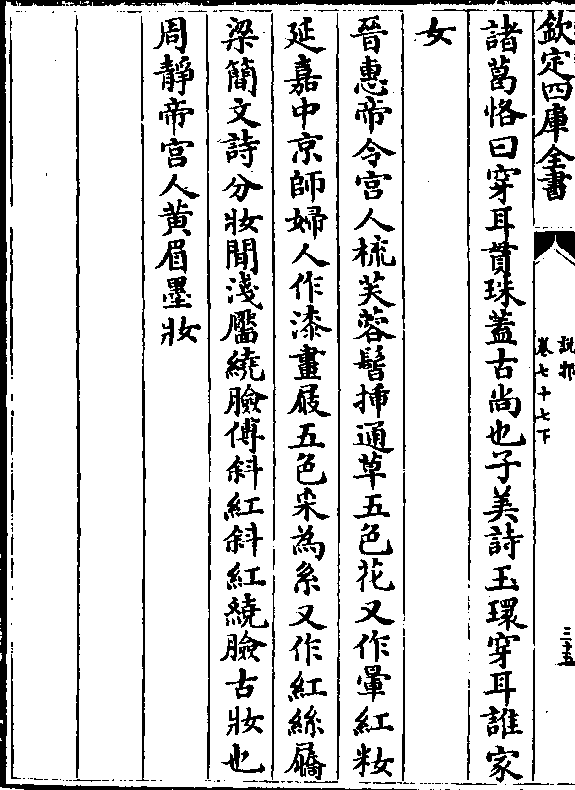 欽定四庫全書
說郛
卷七十七下
三十五
諸葛恪曰穿耳貫珠蓋古尚也子美詩玉環穿耳誰家
女
晉惠帝令宮人梳芙蓉髻插通草五色花又作暈紅粧
延嘉中京師婦人作漆畫屐五色采為系又作紅絲屩
梁簡文詩分妝間淺靨繞臉傅斜紅斜紅繞臉古妝也
周靜帝宮人黃眉墨妝